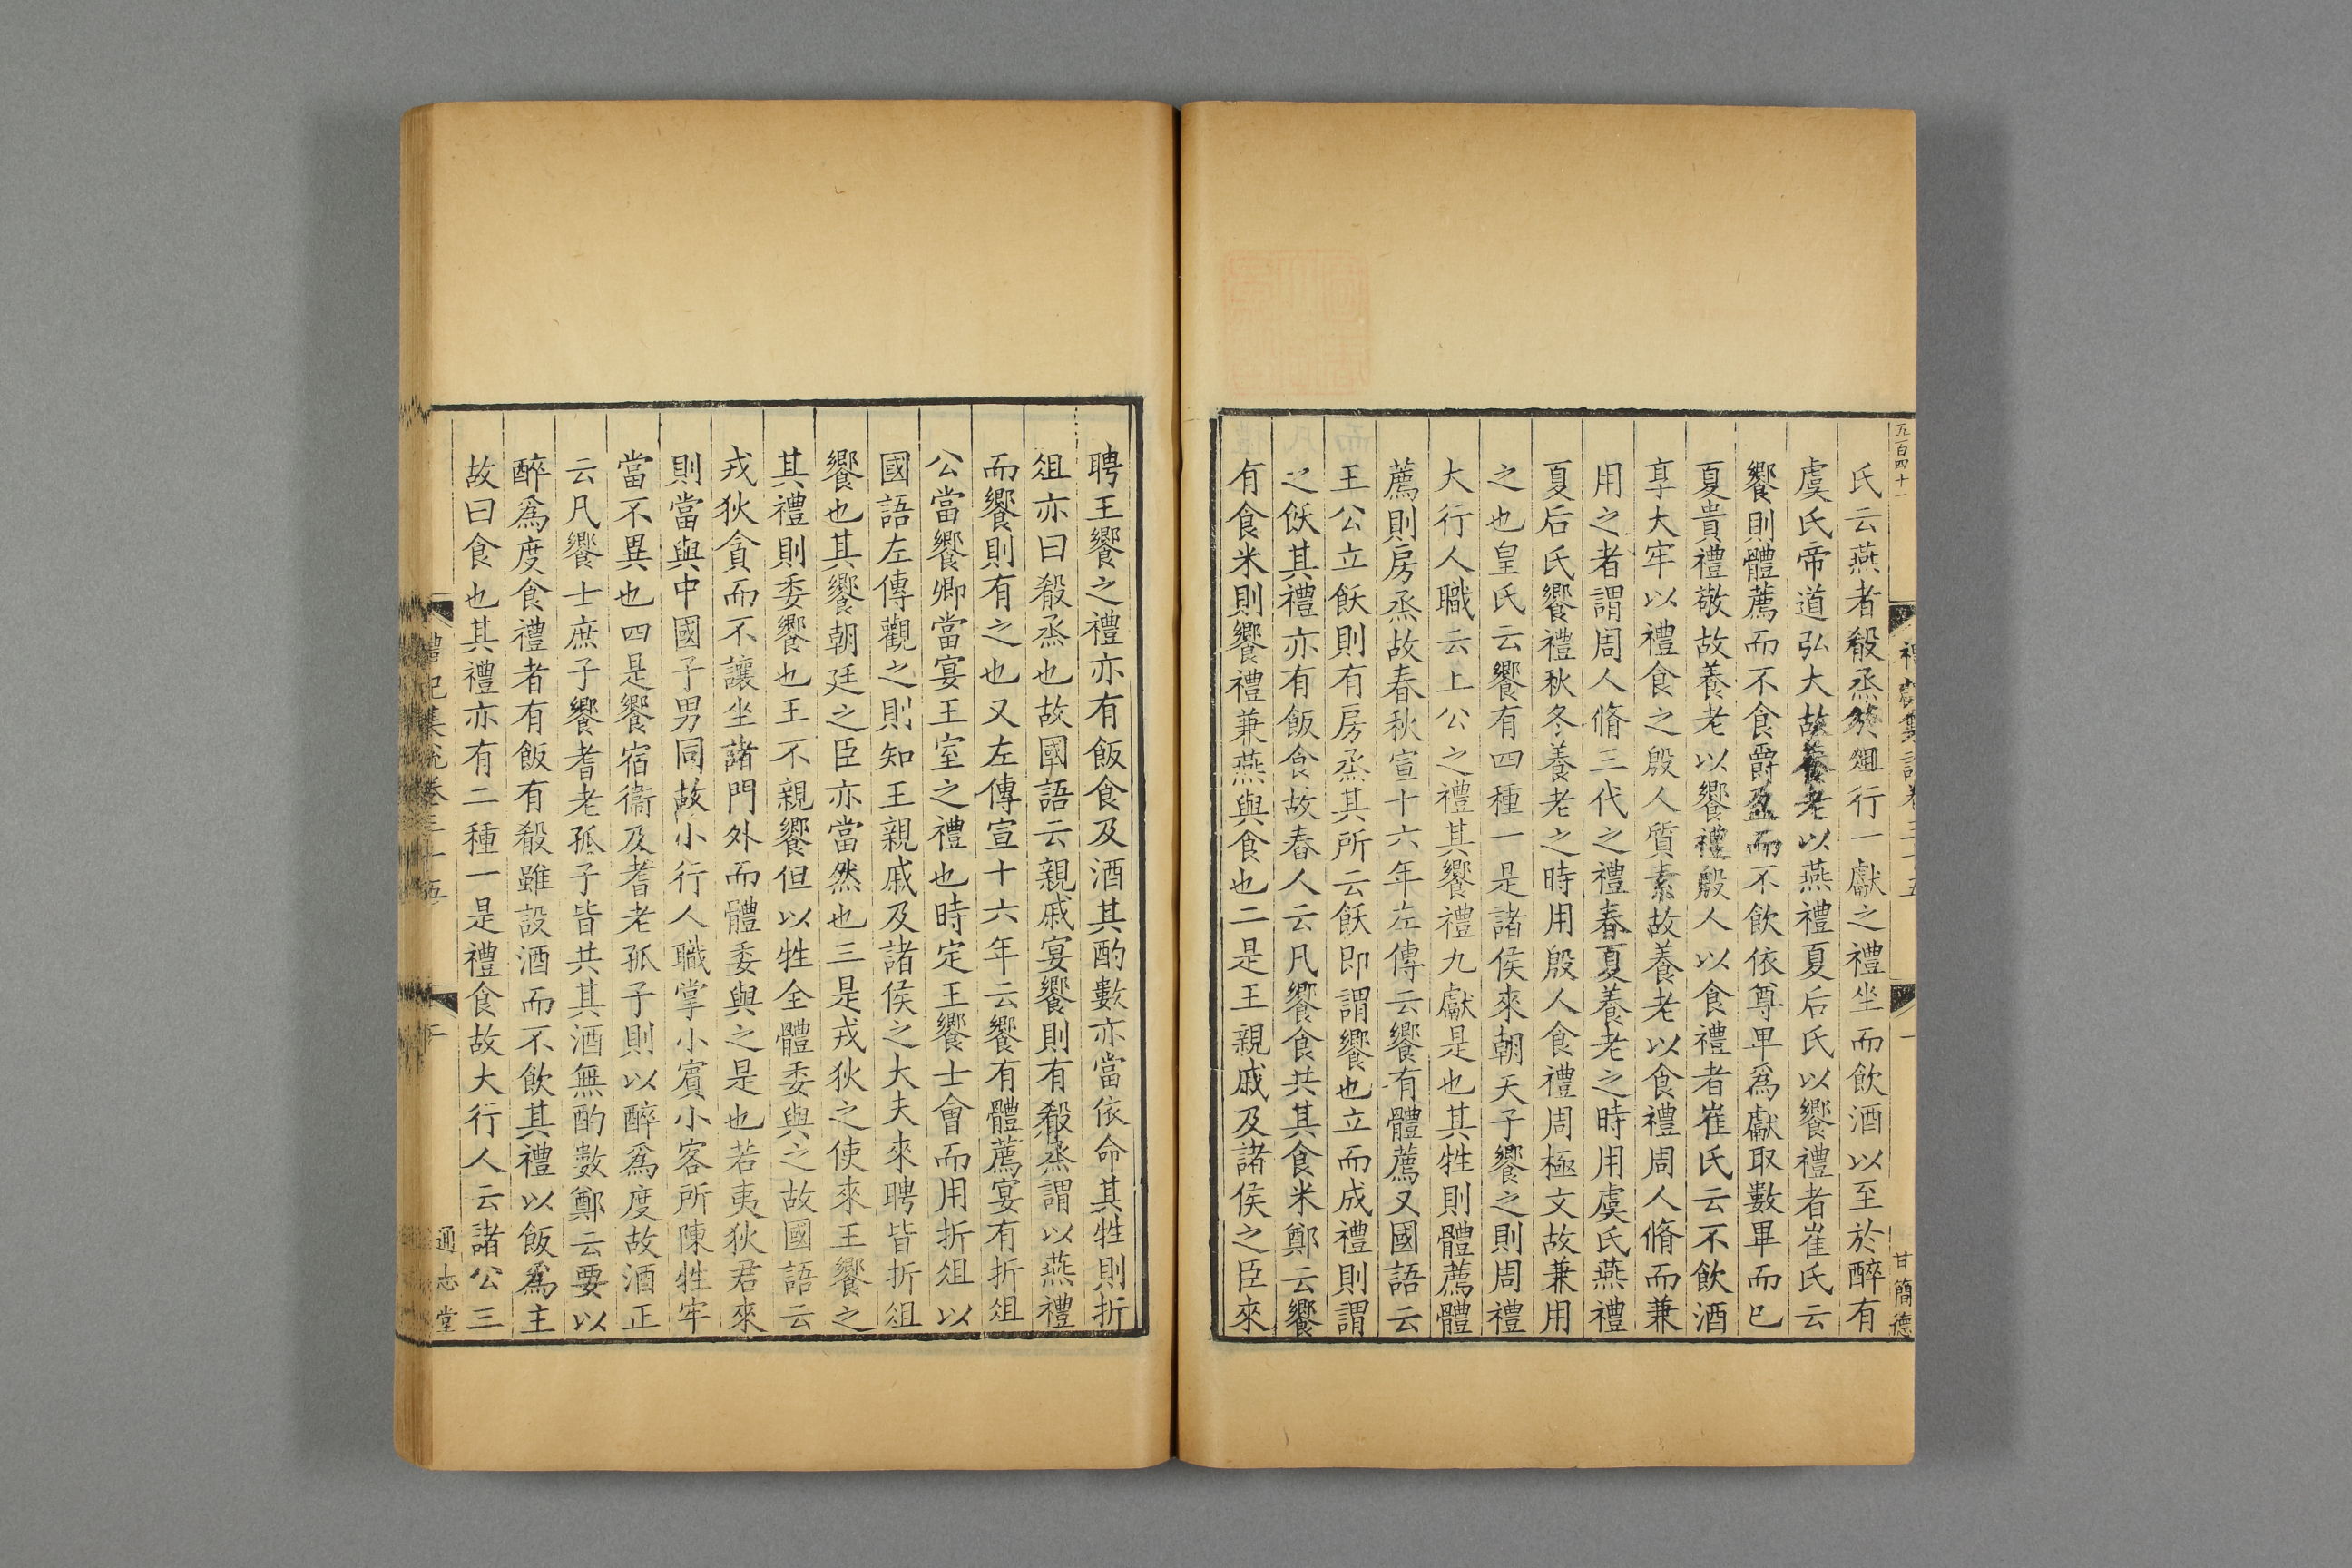 氏云燕者殽烝於俎行一獻之禮坐而飲酒以至於醉有
虞氏帝道弘大故養老以燕禮夏后氏以饗禮者崔氏云
饗則體薦而不食爵盈而不飲依尊卑爲獻取數畢而已
夏貴禮敬故養老以饗禮殷人以食禮者崔氏云不飲酒
享大牢以禮食之殷人質素故養老以食禮周人脩而兼
用之者謂周人脩三代之禮春夏養老之時用虞氏燕禮
夏后氏饗禮秋冬養老之時用殷人食禮周極文故兼用
之也皇氏云饗有四種一是諸侯來朝天子饗之則周禮
大行人職云上公之禮其饗禮九獻是也其牲則體薦體
薦則房烝故春秋宣十六年左傳云饗有體薦又國語云
王公立飫則有房烝其所云飫即謂饗也立而成禮則謂
之飫其禮亦有飯食故舂人云凡饗食共其食米鄭云饗
有食米則饗禮兼燕與食也二是王親戚及諸侯之臣來
五百四十一
甘簡德
聘王饗之禮亦有飯食及酒其酌數亦當依命其牲則折
俎亦曰殽烝也故國語云親戚宴饗則有殽烝謂以燕禮
而饗則有之也又左傳宣十六年云饗有體薦宴有折俎
公當饗卿當宴王室之禮也時定王饗士會而用折俎以
國語左傳觀之則知王親戚及諸侯之大夫來聘皆折俎
饗也其饗朝廷之臣亦當然也三是戎狄之使來王饗之
其禮則委饗也王不親饗但以牲全體委與之故國語云
戎狄貪而不讓坐諸門外而體委與之是也若夷狄君來
則當與中國子男同故小行人職掌小賓小客所陳牲牢
當不異也四是饗宿衞及耆老孤子則以醉爲度故酒正
云凡饗士庶子饗耆老孤子皆共其酒無酌數鄭云要以
醉爲度食禮者有飯有殽雖設酒而不飲其禮以飯爲主
故曰食也其禮亦有二種一是禮食故大行人云諸公三
禮記集說卷三十五
二
通志堂